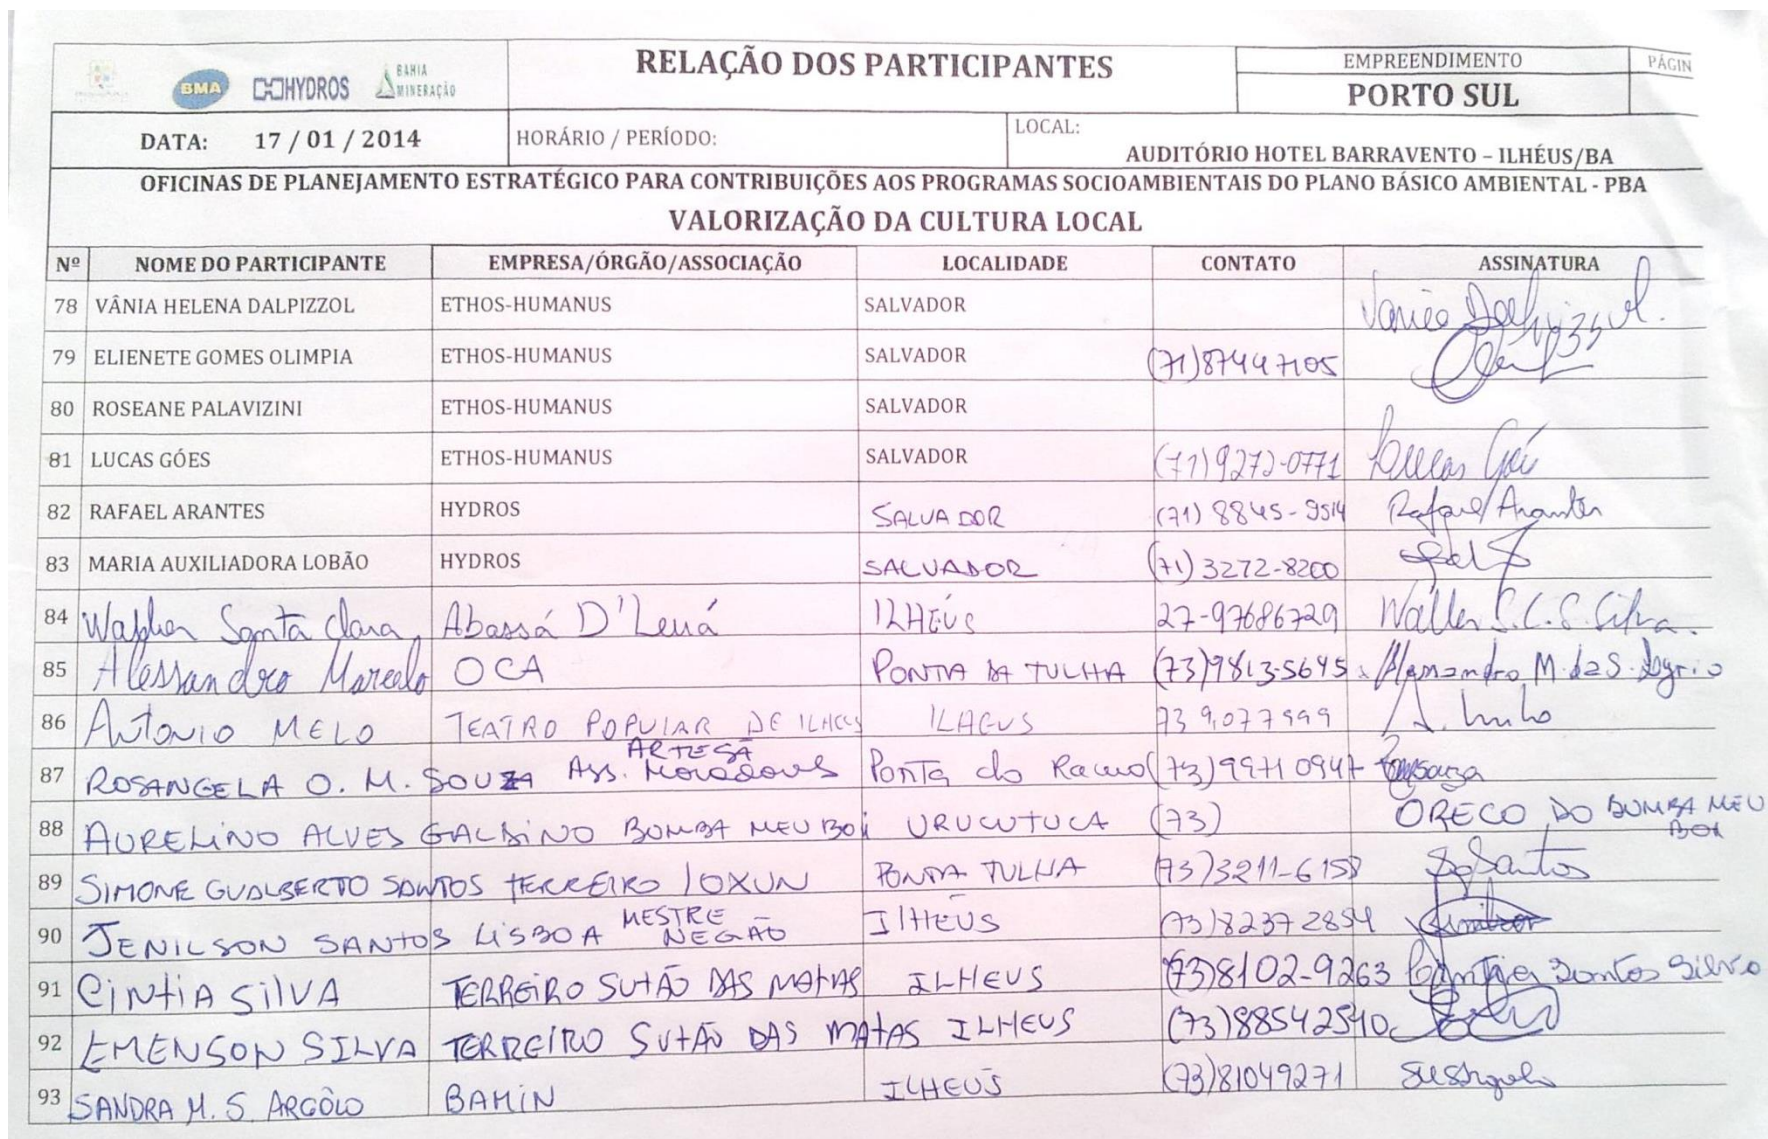 BMA HYDROS BAHIA MINERAÇÃO
RELAÇÃO DOS PARTICIPANTES
EMPREENDIMENTO
PORTO SUL
PÁGIN
DATA: 17 / 01 / 2014
HORÁRIO / PERÍODO:
LOCAL:
AUDITÓRIO HOTEL BARRAVENTO – ILHÉUS/BA
OFICINAS DE PLANEJAMENTO ESTRATÉGICO PARA CONTRIBUIÇÕES AOS PROGRAMAS SOCIOAMBIENTAIS DO PLANO BÁSICO AMBIENTAL - PBA
VALORIZAÇÃO DA CULTURA LOCAL
Nº NOME DO PARTICIPANTE EMPRESA/ÓRGÃO/ASSOCIAÇÃO LOCALIDADE CONTATO ASSINATURA
78 VÂNIA HELENA DALPIZZOL ETHOS-HUMANUS SALVADOR
79 ELIENETE GOMES OLIMPIA ETHOS-HUMANUS SALVADOR (71)87447105
80 ROSEANE PALAVIZINI ETHOS-HUMANUS SALVADOR
81 LUCAS GÓES ETHOS-HUMANUS SALVADOR (71)9272-0771 Lucas Góes
82 RAFAEL ARANTES HYDROS SALVADOR (71) 8845-9514 Rafael Arantes
83 MARIA AUXILIADORA LOBÃO HYDROS SALVADOR (71) 3272-8200
84 Santa Clara Abassá D'Lewá ILHEÚS 27-97686729 S.C.S. Silva.
85 Alessandro Marcelo OCA PONTA DA TULHA (73)9813-5645
86 ANTONIO MELO TEATRO POPULAR DE ILHEUS ILHEUS 73 9,077999
87 ROSANGELA O. M. SOUZA ARTESÃ Ass. Moradores Ponta do Ramo (73)9971 0947
88 AURELINO ALVES GALDINO BUMBA MEU BOI URUCUTUCA (73) ORECO DO BUMBA MEU BOI
89 SIMONE GUALBERTO SANTOS TERREIRO IOXUN PONTA TULHA (73)3211-6158
90 JENILSON SANTOS LISBOA MESTRE NEGÃO ILHEÚS (73)82372854
91 CINTIA SILVA TERREIRO SUTÃO DAS MATAS ILHEUS (73)8102-9263 Santos Silva
92 EMENSON SILVA TERREIRO SUTÃO DAS MATAS ILHEUS (73)88542540
93 SANDRA M. S. ARGÔLO BAMIN ILHEUS (73)81049271